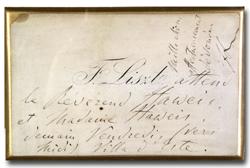 F. Liszt attend
le Révérend Haweis,
et Madame Haweis,
demain Vendredi, (vers
midi) Villa d'Este.